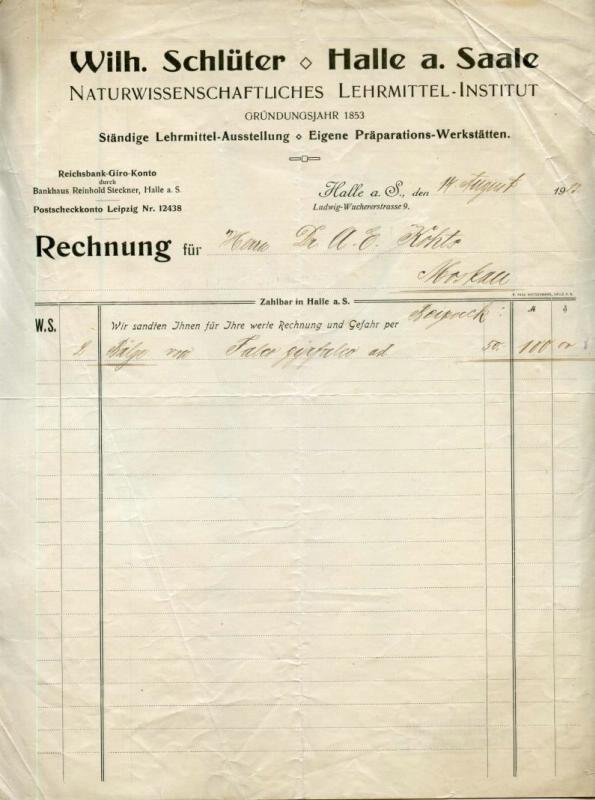 Wilh. Schlüter ◇ Halle a. Saale
NATURWISSENSCHAFTLICHES LEHRMITTEL-INSTITUT
GRÜNDUNGSJAHR 1853
Ständige Lehrmittel-Ausstellung ◇ Eigene Präparations-Werkstätten.
Reichsbank-Giro-Konto
durch
Bankhaus Reinhold Steckner, Halle a. S.
Postscheckkonto Leipzig Nr. 12438
Halle a. S., den 14 August 191
Ludwig-Wuchererstrasse 9.
Rechnung für Herrn Dr A. E. Kohts
Moskau
Zahlbar in Halle a. S.
W.S.
Wir sandten Ihnen für Ihre werte Rechnung und Gefahr per
2 Bälge von Falco gyrfalco ad 50. 100 00